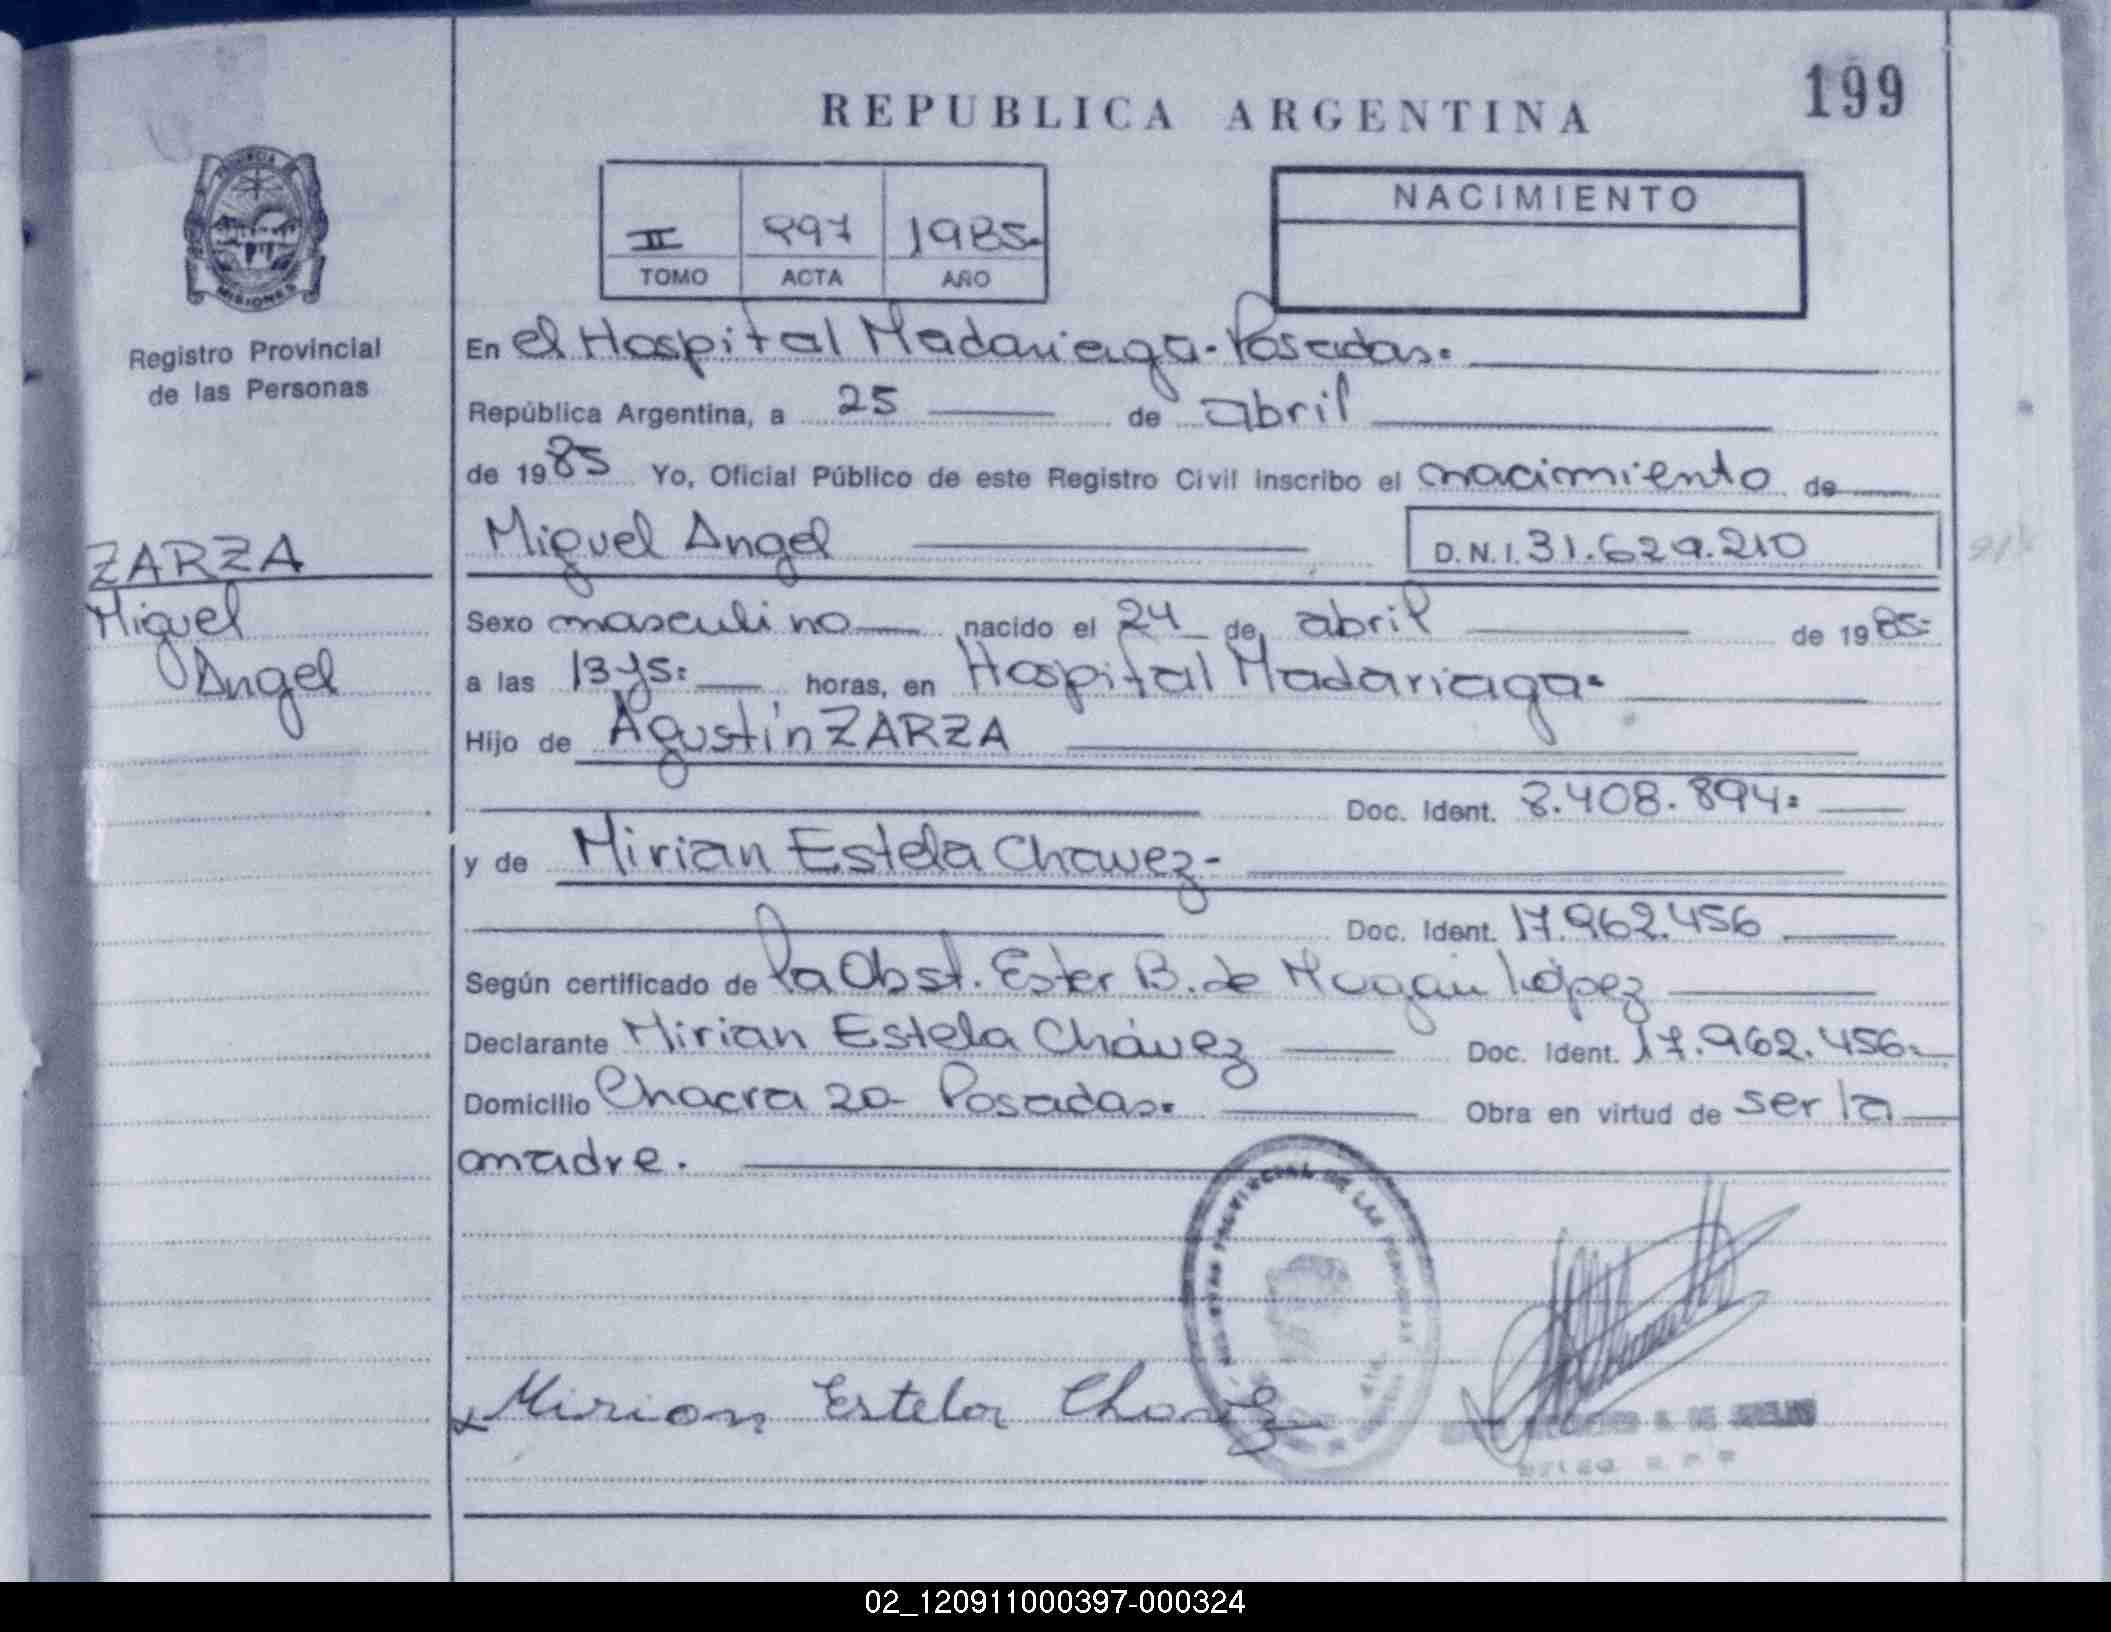 REPUBLICA ARGENTINA
199
II 997 1985.
TOMO ACTA AÑO
NACIMIENTO
MISIONES
Registro Provincial
de las Personas
En el Hospital Madariaga. Posadas.
República Argentina, a 25 de abril
de 1985 Yo, Oficial Público de este Registro Civil inscribo el nacimiento de
ZARZA
Miguel
Angel
Miguel Angel D.N.I. 31.629.210
Sexo masculino nacido el 24 de abril de 1985.
a las 13 horas, en Hospital Madariaga.
Hijo de Agustín ZARZA
Doc. Ident. 8.408.894.
y de Mirian Estela Chavez-
Doc. Ident. 17.962.456
Según certificado de la Obst. Ester B. de López
Declarante Mirian Estela Chávez Doc. Ident. 17.962.456.
Domicilio Chacra 20- Posadas. Obra en virtud de ser la
madre.
PROVINCIAL DE LAS PERSONAS
Mirian Estela Chavez
02_120911000397-000324